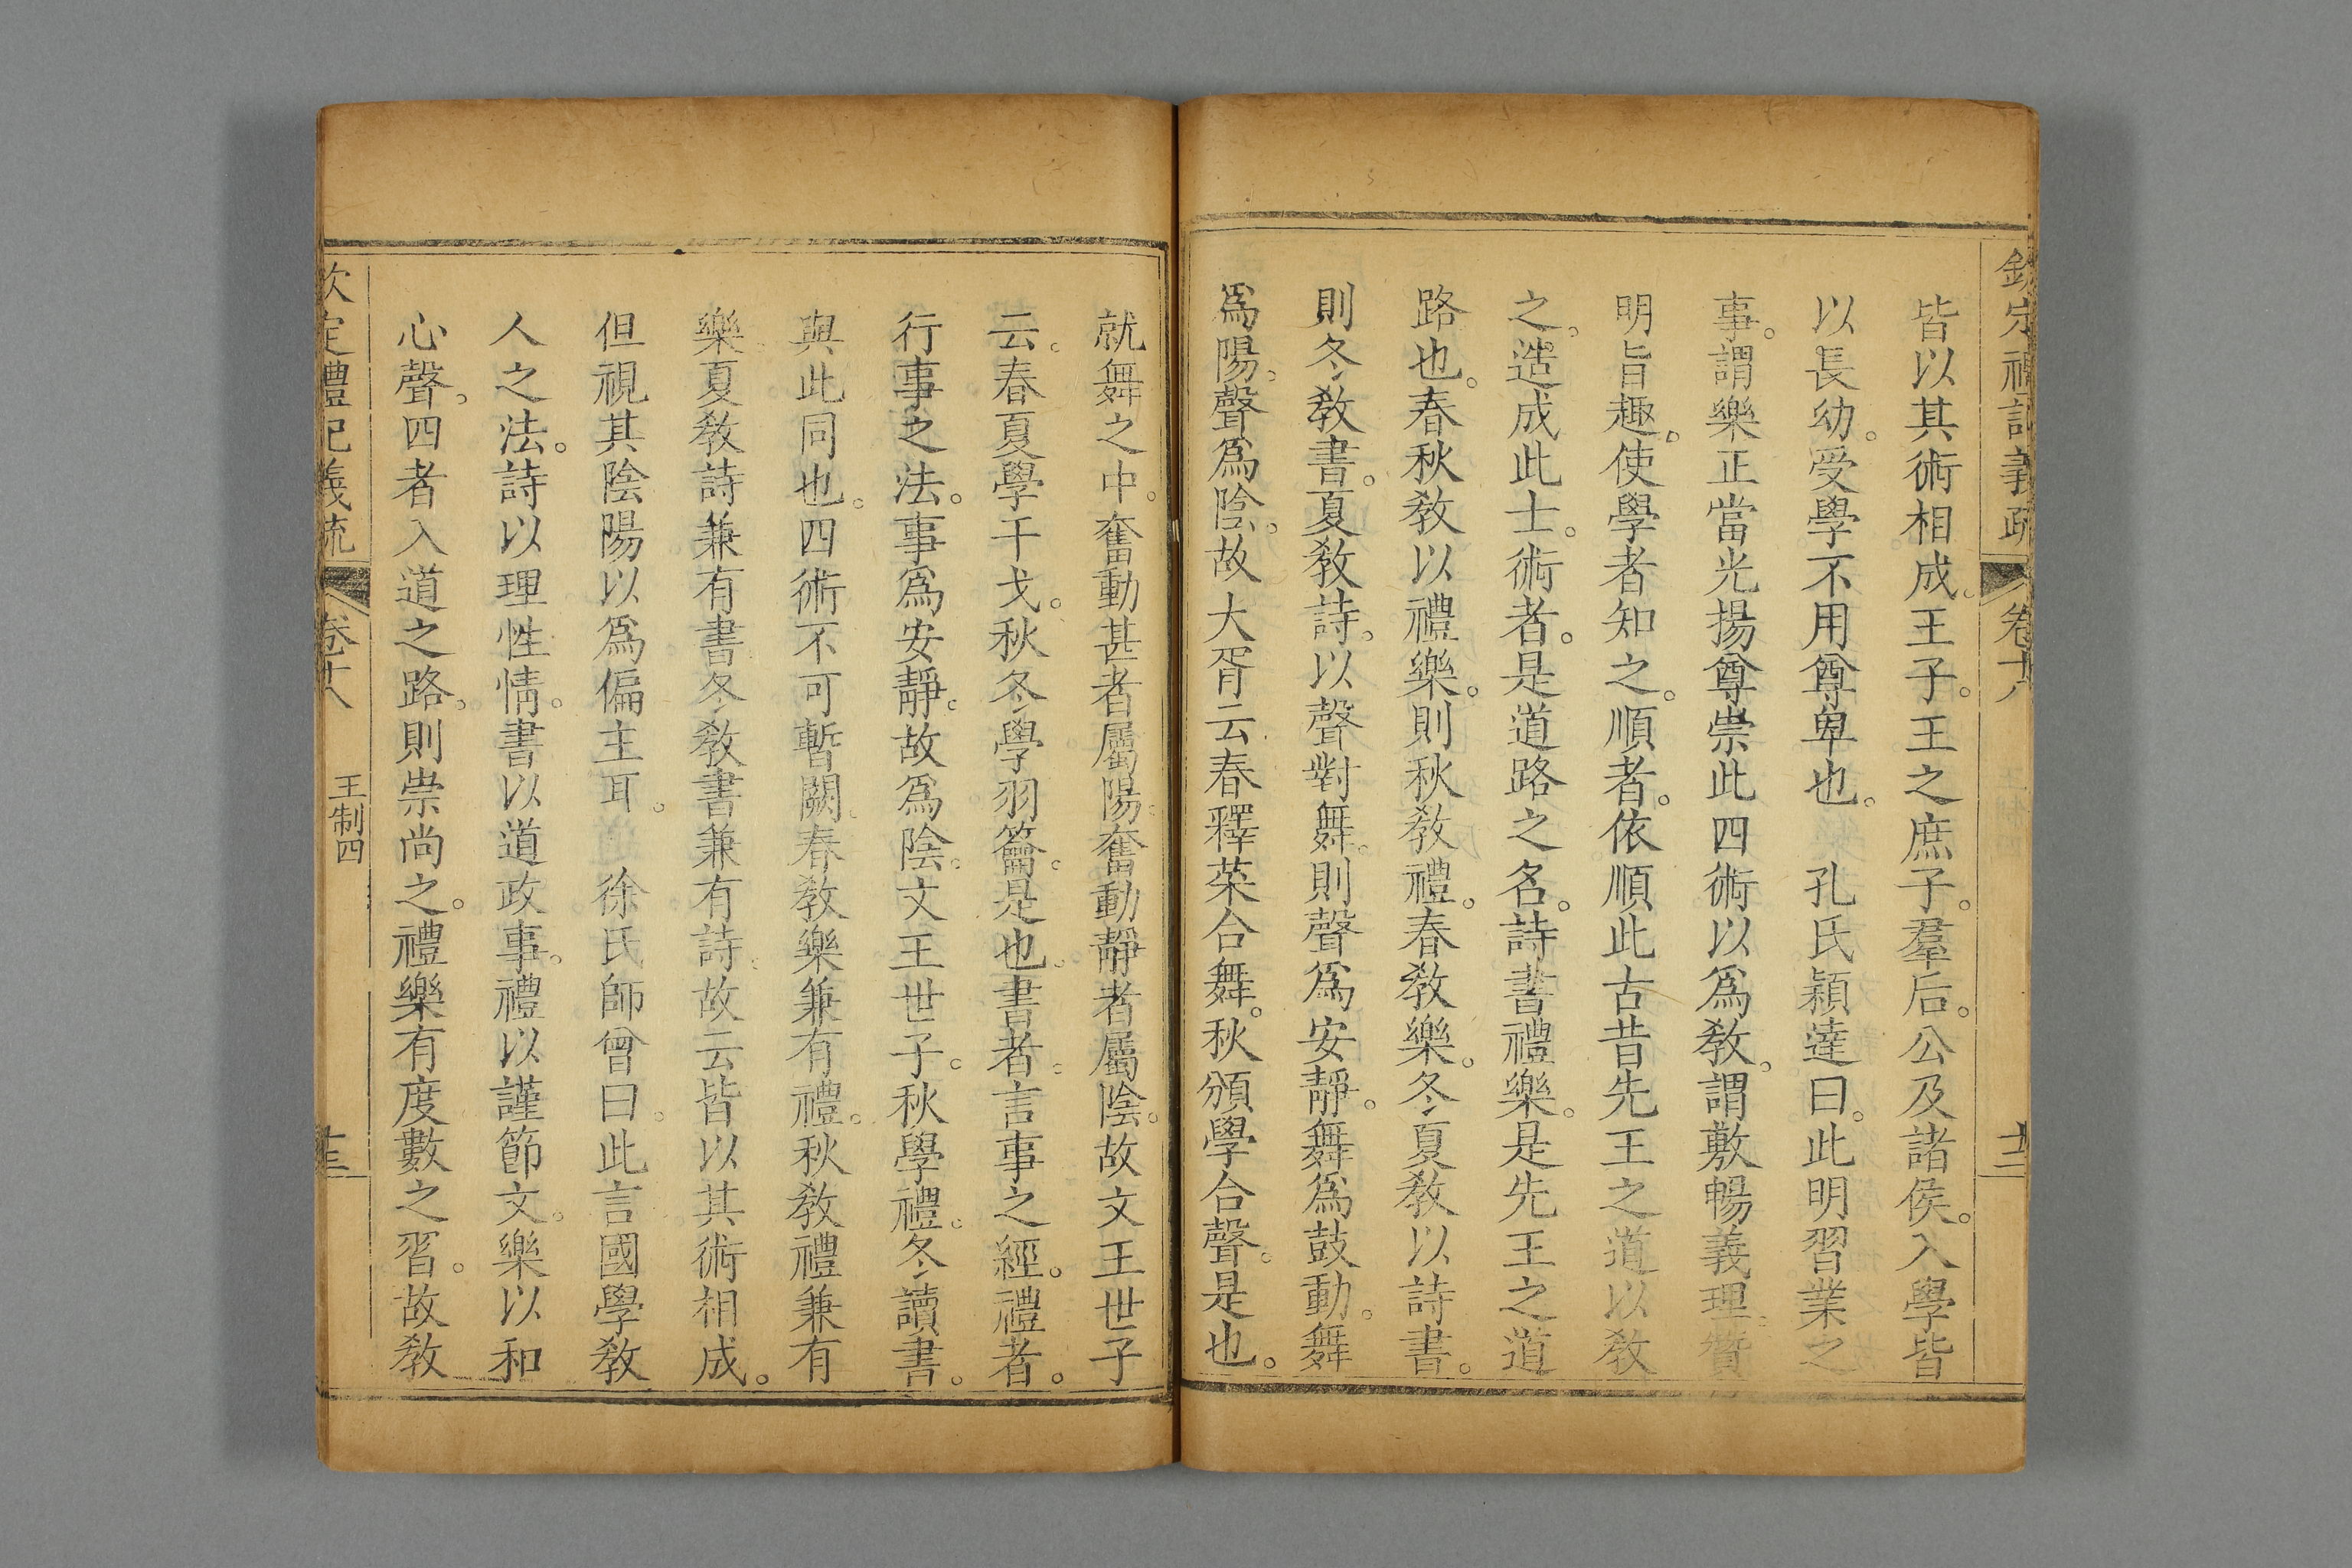 欽定禮記義疏 卷十八 十二
皆以其術相成。王子。王之庶子。羣后。公及諸侯。入學皆
以長幼。受學不用尊卑也。 孔氏穎達曰。此明習業之
事。謂樂正當光揚尊崇此四術以爲敎。謂敷暢義理。贊
明旨趣。使學者知之。順者。依順此古昔先王之道以敎
之。造成此士。術者。是道路之名。詩書禮樂。是先王之道
路也。春秋敎以禮樂。則秋敎禮。春敎樂。冬夏敎以詩書。
則冬敎書。夏敎詩。以聲對舞。則聲爲安靜。舞爲鼓動。舞
爲陽。聲爲陰。故大胥云春釋菜合舞。秋頒學合聲。是也。
就舞之中。奮動甚者屬陽。奮動靜者屬陰。故文王世子
云。春夏學干戈。秋冬學羽籥。是也。書者。言事之經。禮者。
行事之法。事爲安靜。故爲陰。文王世子。秋學禮。冬讀書。
與此同也。四術不可暫闕。春敎樂兼有禮。秋敎禮兼有
樂夏敎詩兼有書冬敎書兼有詩。故云皆以其術相成。
但視其陰陽以爲偏主耳。 徐氏師曾曰。此言國學敎
人之法。詩以理性情。書以道政事。禮以謹節文。樂以和
心聲。四者入道之路。則崇尚之。禮樂有度數之習。故敎
欽定禮記義疏 卷十八 王制四 十三